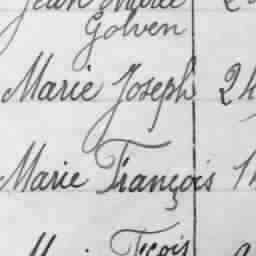 Jean Marie 2
Golven
Marie Joseph 24
Marie François 1